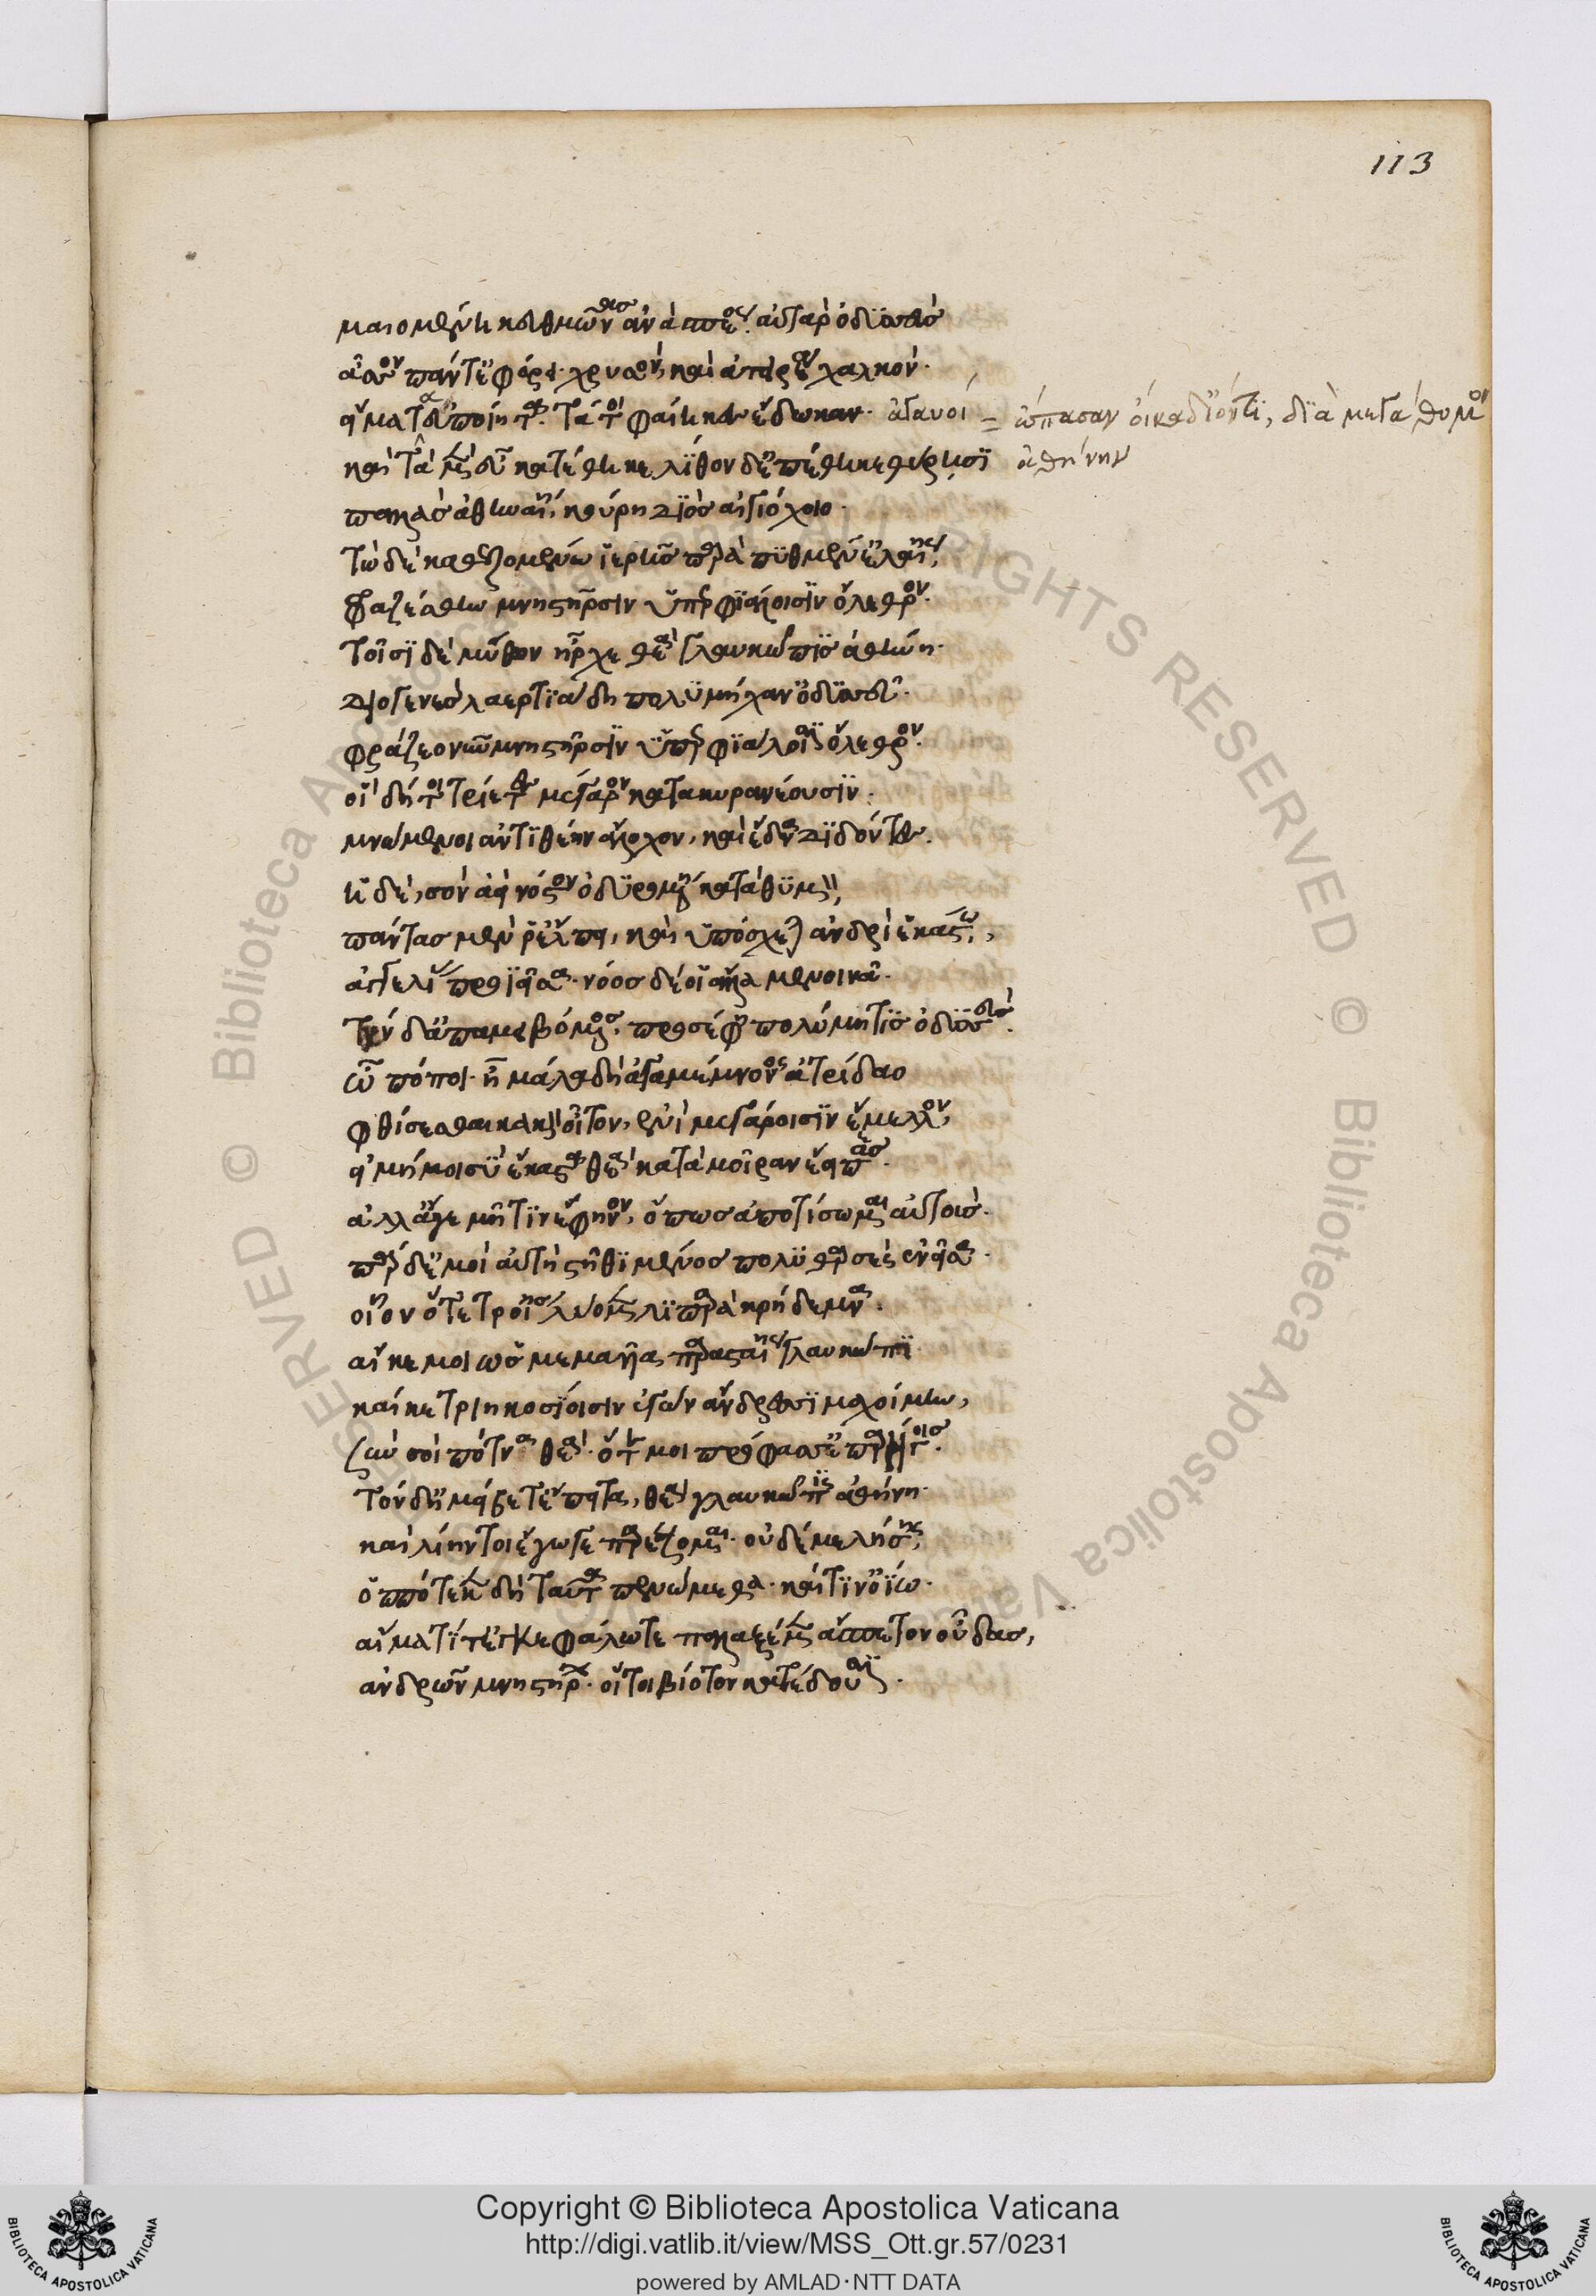 113
μαιομένη κευθμῶνας ἀνὰ σπέος. αὐτὰρ ὀδυσσεὺς
ἆσσον πάντ' ἐφόρει. χρυσὸν, καὶ ἀτειρέα χαλκόν.
εἵματα τ' εὐποίητα. τά τοι φαίηκες ἔδωκαν. ἀγαυοί = ὤπασαν οἴκαδ' ἰόντι, διὰ μεγάθυμον
καὶ τὰ μὲν εὖ κατέθηκε λίθον δ' ἐπέθηκε θύρῃσι ἀθήνην
παλλὰς ἀθηναίη, κούρη διὸς αἰγιόχοιο.
τὼ δὲ καθεζομένω ἱερῆς παρὰ πυθμέν' ἐλαίης,
φραζέσθην μνηστῆρσιν ὑπερφιάλοισιν ὄλεθρον.
τοῖσι δὲ μύθων ἦρχε θεὰ γλαυκῶπις ἀθήνη.
διογενὲς λαερτιάδη πολυμήχαν' ὀδυσσεῦ.
φράζευ ὅπως μνηστῆρσιν ὑπερφιάλοισι ὄλεθρον.
οἳ δή τοι τρίετες μέγαρον κατακοιρανέουσιν.
μνώμενοι ἀντιθέην ἄλοχον, καὶ ἕδνα διδόντες.
ἡ δὲ, σὸν ἀεὶ νόστον ὀδυρομένη κατὰ θυμὸν,
πάντας μέν ῥ' ἔλπει, καὶ ὑπόσχεται ἀνδρὶ ἑκάστῳ,
ἀγγελίας προϊεῖσα. νόος δέ οἱ ἄλλα μενοινᾷ.
τὴν δ' ἀπαμειβόμενος προσέφη πολύμητις ὀδυσσεύς.
ὢ πόποι. ἦ μάλα δὴ ἀγαμέμνονος ἀτρείδαο
φθίσεσθαι κακὸν οἶτον, ἐνὶ μεγάροισιν ἔμελλον,
εἰ μή μοι σὺ ἕκαστα θεὰ κατὰ μοῖραν ἔειπας.
ἀλλ' ἄγε μῆτιν ὕφηνον, ὅπως ἀποτίσομαι αὐτούς.
πὰρ δέ μοι αὐτὴ στῆθι μένος πολυθαρσὲς ἐνεῖσα.
οἷον ὅτε τροίης λύομεν λιπαρὰ κρήδεμνα.
αἴ κε μοι ὣς μεμαυῖα παρασταίης γλαυκῶπι
καί κε τριηκοσίοισιν ἐγὼν ἄνδρεσσι μαχοίμην,
σὺν σοὶ πότνα θεὰ. ὅτε μοι πρόφρασσ' ἐπαρήγοις.
τὸν δ' ἠμείβετ' ἔπειτα, θεὰ γλαυκῶπις ἀθήνη.
καὶ λίην τοι ἔγωγε παρέσσομαι. οὐδέ με λήσεις,
ὁππότε κεν δὴ ταῦτα πενώμεθα. καί τιν' ὀΐω.
αἵματί τ' ἐγκεφάλῳ τε παλαξέμεν ἄσπετον οὖδας,
ἀνδρῶν μνηστήρων. οἵ τοι βίοτον κατέδουσι.
Copyright © Biblioteca Apostolica Vaticana
http://digi.vatlib.it/view/MSS_Ott.gr.57/0231
powered by AMLAD·NTT DATA